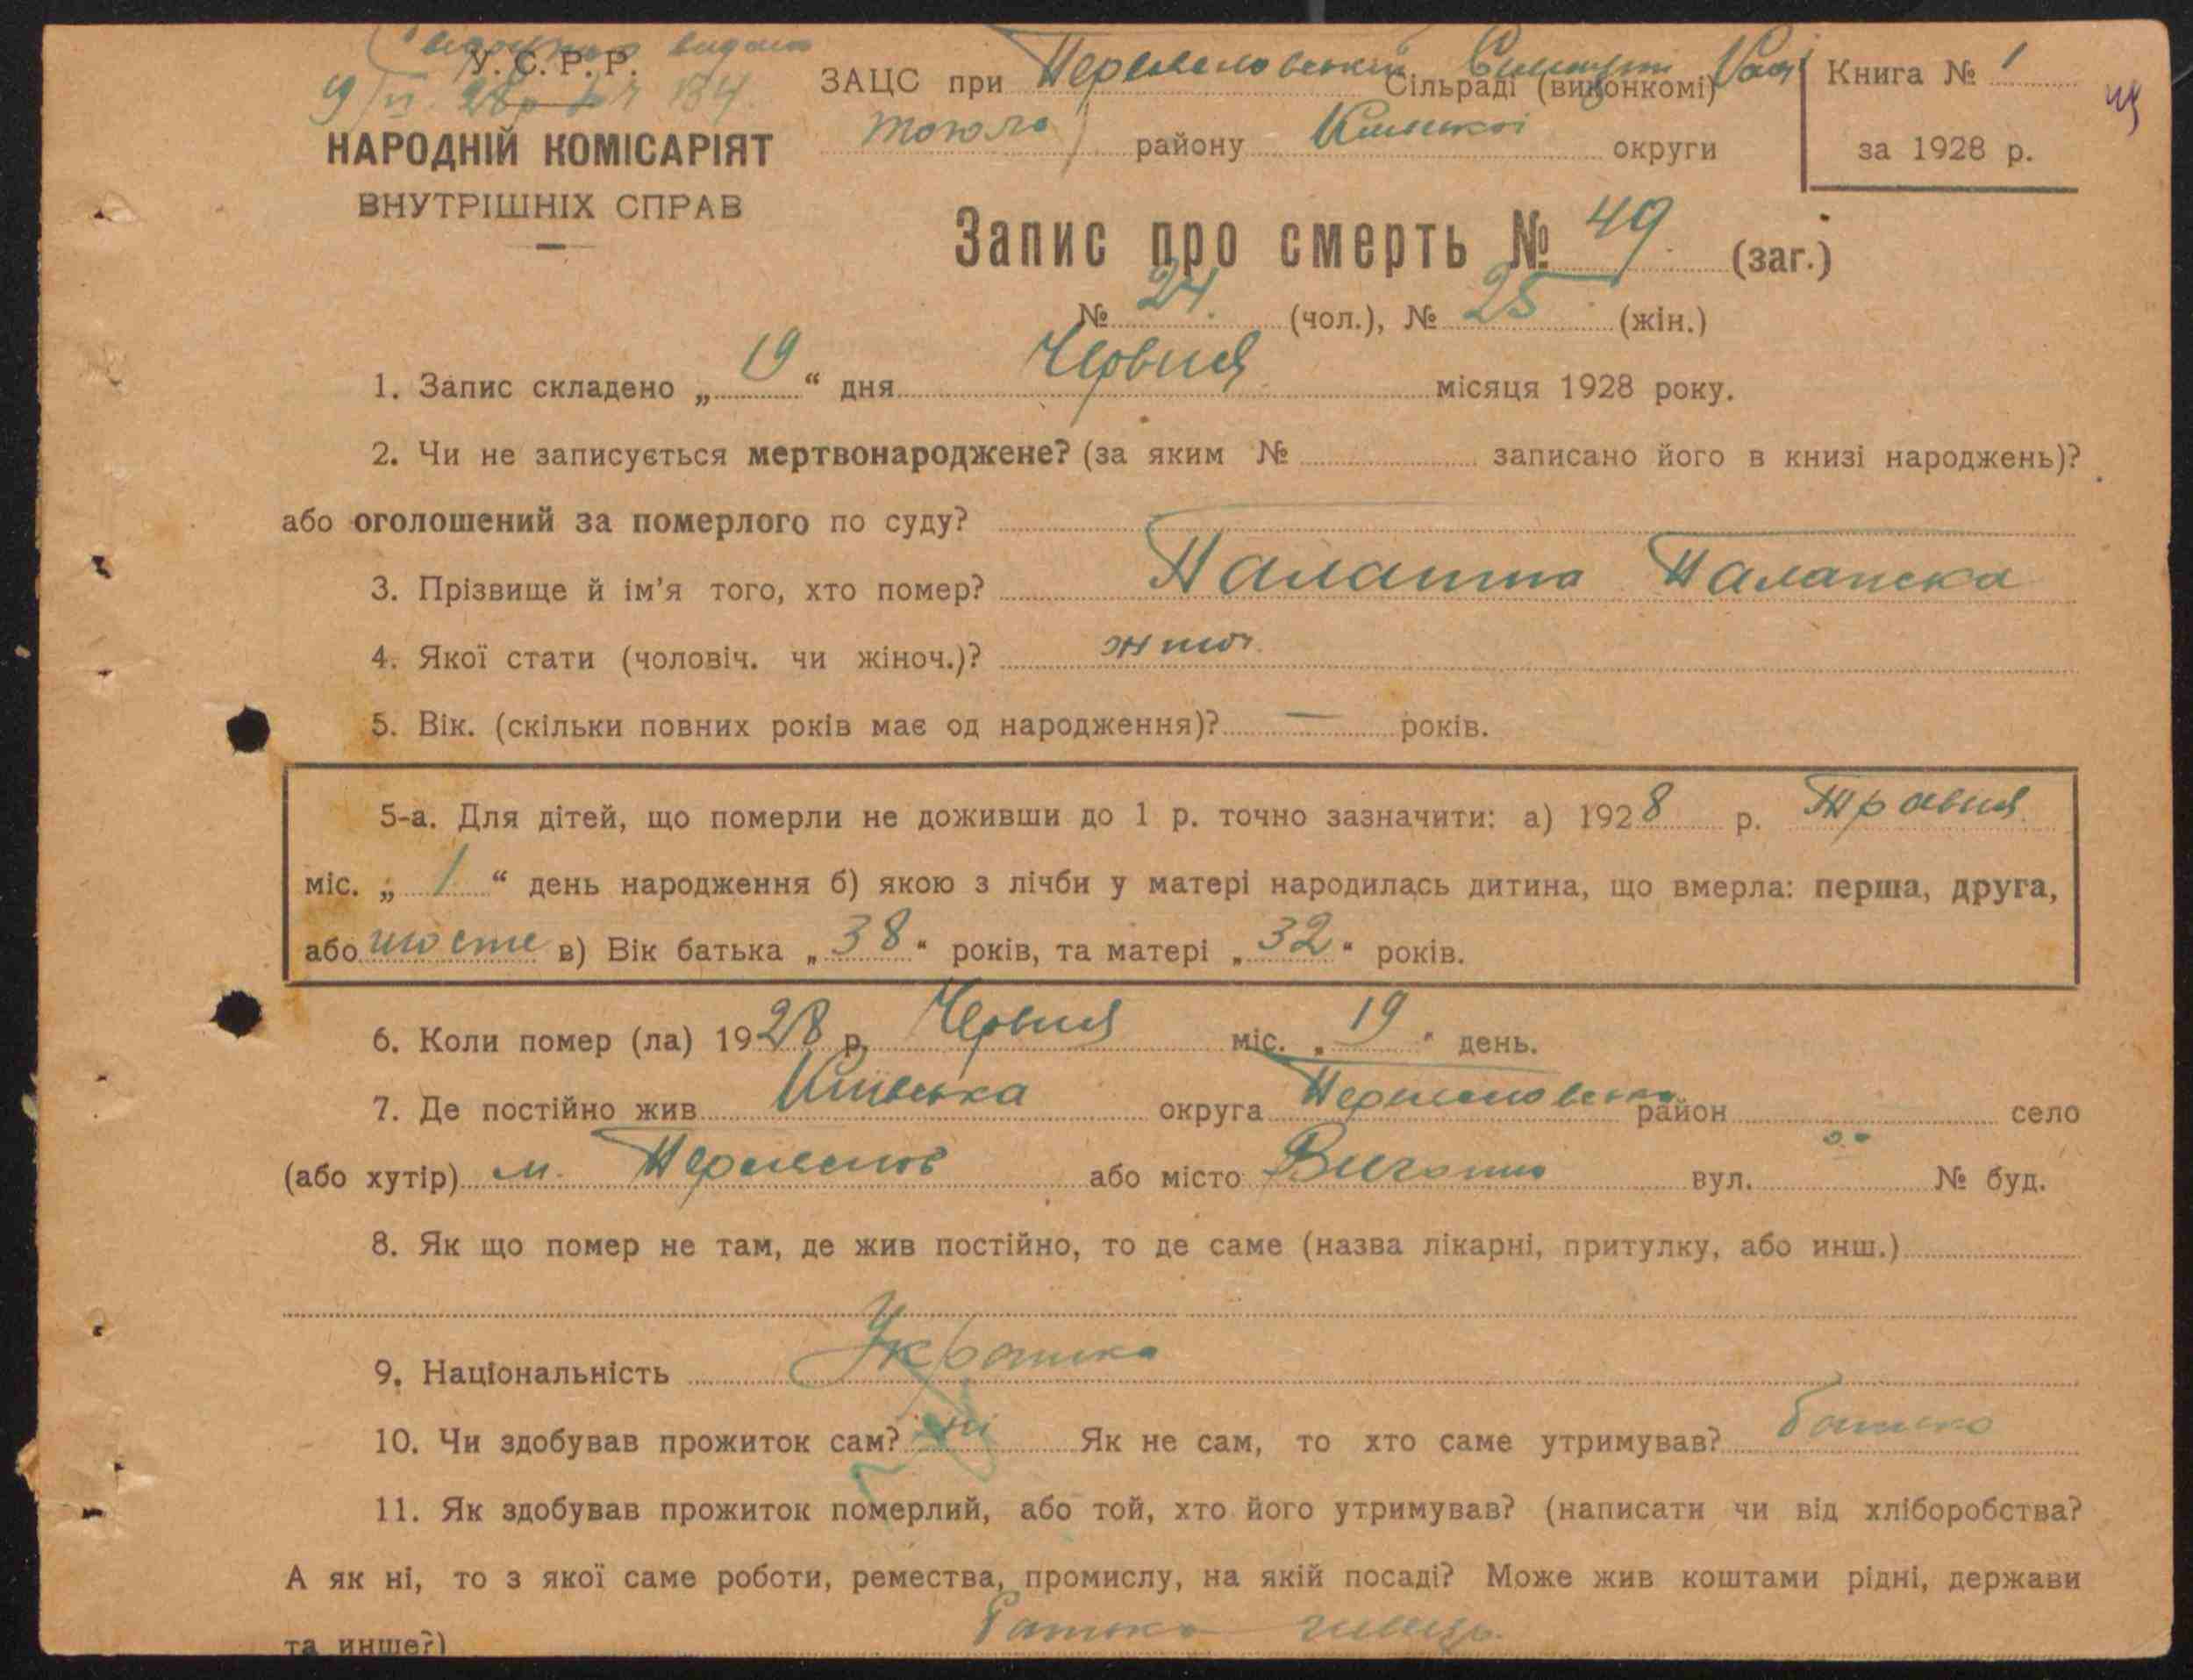 У.С.Р.Р.
НАРОДНІЙ КОМІСАРІЯТ
ВНУТРІШНІХ СПРАВ
ЗАЦС при Сільраді (виконкомі)
району округи
Книга № 1
за 1928 р.
Запис про смерть № 49 (заг.)
№ 24. (чол.), № 25 (жін.)
1. Запис складено „ 19 “ дня Червня місяця 1928 року.
2. Чи не записується мертвонароджене? (за яким № записано його в книзі народжень)?
або оголошений за померлого по суду?
3. Прізвище й ім'я того, хто помер? Палажка
4. Якої стати (чоловіч. чи жіноч.)? жіноч.
5. Вік. (скільки повних років має од народження)? — років.
5-а. Для дітей, що померли не доживши до 1 р. точно зазначити: а) 1928 р. Травня
міс. „ 1 “ день народження б) якою з лічби у матері народилась дитина, що вмерла: перша, друга,
або шосте в) Вік батька „ 38 “ років, та матері „ 32 “ років.
6. Коли помер (ла) 1928 р. Червня міс. „ 19 “ день.
7. Де постійно жив округа район село
(або хутір) м. або місто вул. № буд.
8. Як що помер не там, де жив постійно, то де саме (назва лікарні, притулку, або инш.)
9. Національність Українка
10. Чи здобував прожиток сам? ні Як не сам, то хто саме утримував? батько
11. Як здобував прожиток померлий, або той, хто його утримував? (написати чи від хліборобства?
А як ні, то з якої саме роботи, ремества, промислу, на якій посаді? Може жив коштами рідні, держави
та инше?) Батько